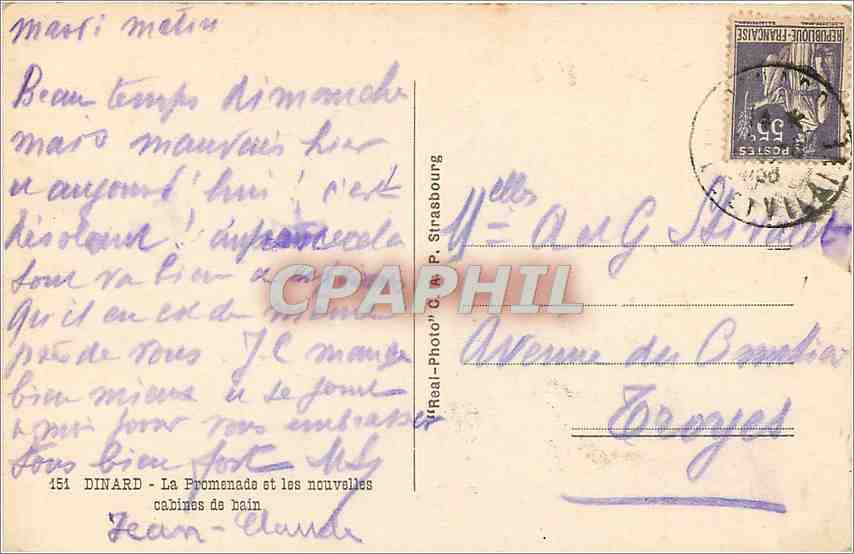 mardi matin
Beau temps dimanche
mais mauvais hier
et aujourd'hui! c'est
désolant! à part cela
tout va bien et
Qu'il en est de même
près de vous. J.C mange
bien mieux et se joint
à moi pour vous embrasser
tous bien fort
151 DINARD - La Promenade et les nouvelles
cabines de bain
Jean-Claude
"Real-Photo" C. A. P. Strasbourg
CPAPHIL
REPUBLIQUE-FRANÇAISE
55c
POSTES
Melles A et G
Avenue du
Troyes